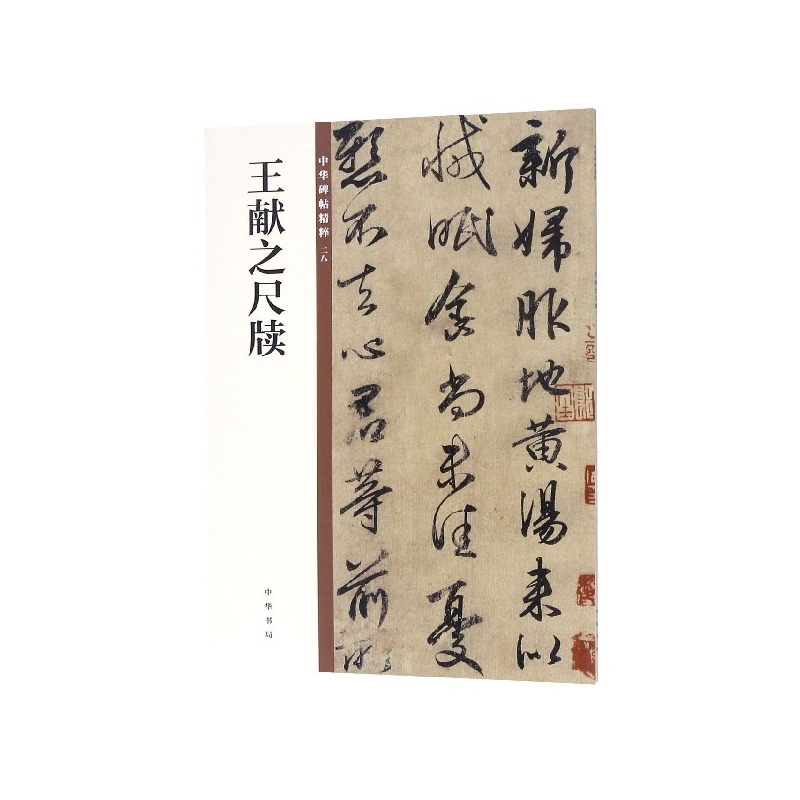 王献之尺牍
中华书局
中华碑帖精粹 二八
新婦服地黄湯来似
减眠食尚未佳憂
懸不去心君等前